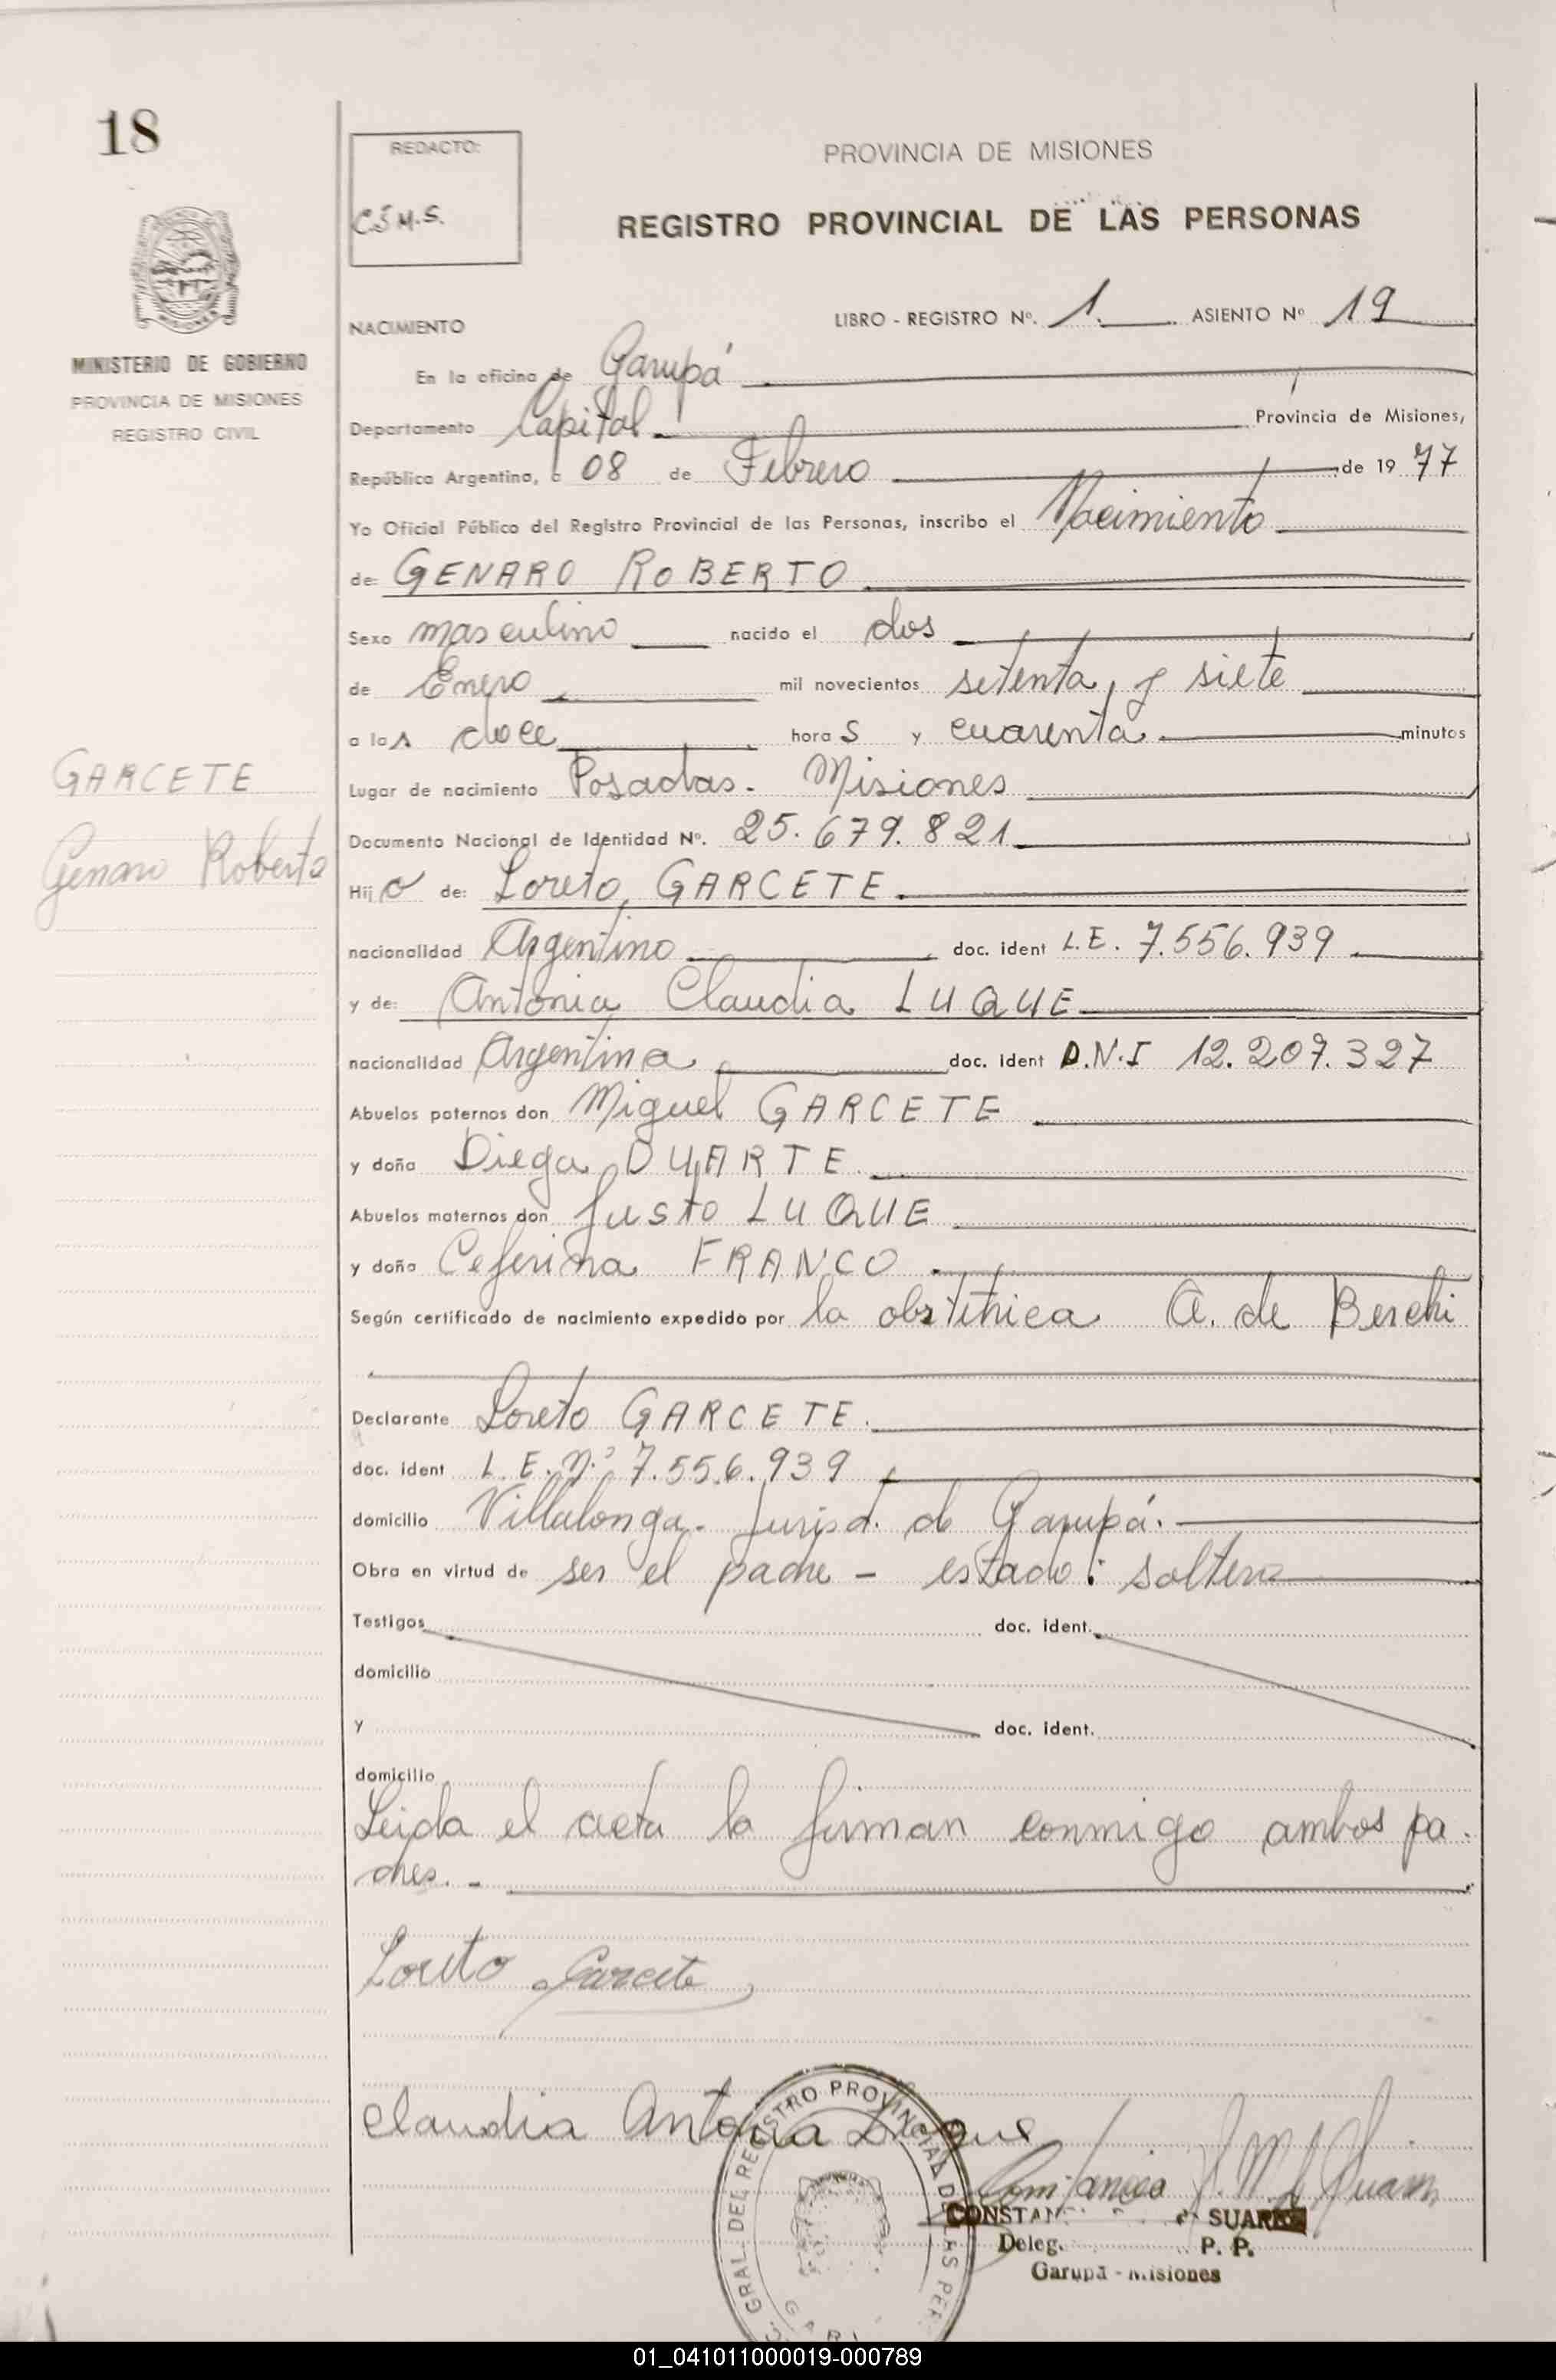 18
REDACTO:
C S M.S.
PROVINCIA DE MISIONES
REGISTRO PROVINCIAL DE LAS PERSONAS
MINISTERIO DE GOBIERNO
PROVINCIA DE MISIONES
REGISTRO CIVIL
NACIMIENTO LIBRO - REGISTRO Nº. 1. ASIENTO Nº 19
En la oficina de Garupá
Departamento Capital. Provincia de Misiones,
República Argentina, a 08 de Febrero de 19 77
Yo Oficial Público del Registro Provincial de las Personas, inscribo el Nacimiento
de: GENARO ROBERTO
Sexo masculino nacido el dos
de Enero mil novecientos setenta y siete
a las doce horas y cuarenta minutos
GARCETE
Genaro Roberto
Lugar de nacimiento Posadas. Misiones
Documento Nacional de Identidad Nº. 25.679.821
Hijo de: Loreto GARCETE
nacionalidad Argentino doc. ident L.E. 7.556.939
y de: Antonia Claudia LUQUE
nacionalidad Argentina doc. ident D.N.I 12.207.327
Abuelos paternos don Miguel GARCETE
y doña Diega DUARTE
Abuelos maternos don Justo LUQUE
y doña Ceferina FRANCO
Según certificado de nacimiento expedido por la obstetrica A. de Berchi
Declarante Loreto GARCETE.
doc. ident L.E. Nº 7.556.939
domicilio Villalonga. Jurisd. de Garupá.
Obra en virtud de ser el padre - estado: soltero
Testigos doc. ident.
domicilio
y doc. ident.
domicilio
Leida el acta la firman conmigo ambos pa.
dres. -
Loreto Garcete
Claudia Antonia Luque
GRAL. DEL REGISTRO PROVINCIAL DE LAS PER
Constancia Suarez
CONSTAN SUAREZ
Deleg. P. P.
Garupá - Misiones
01_041011000019-000789